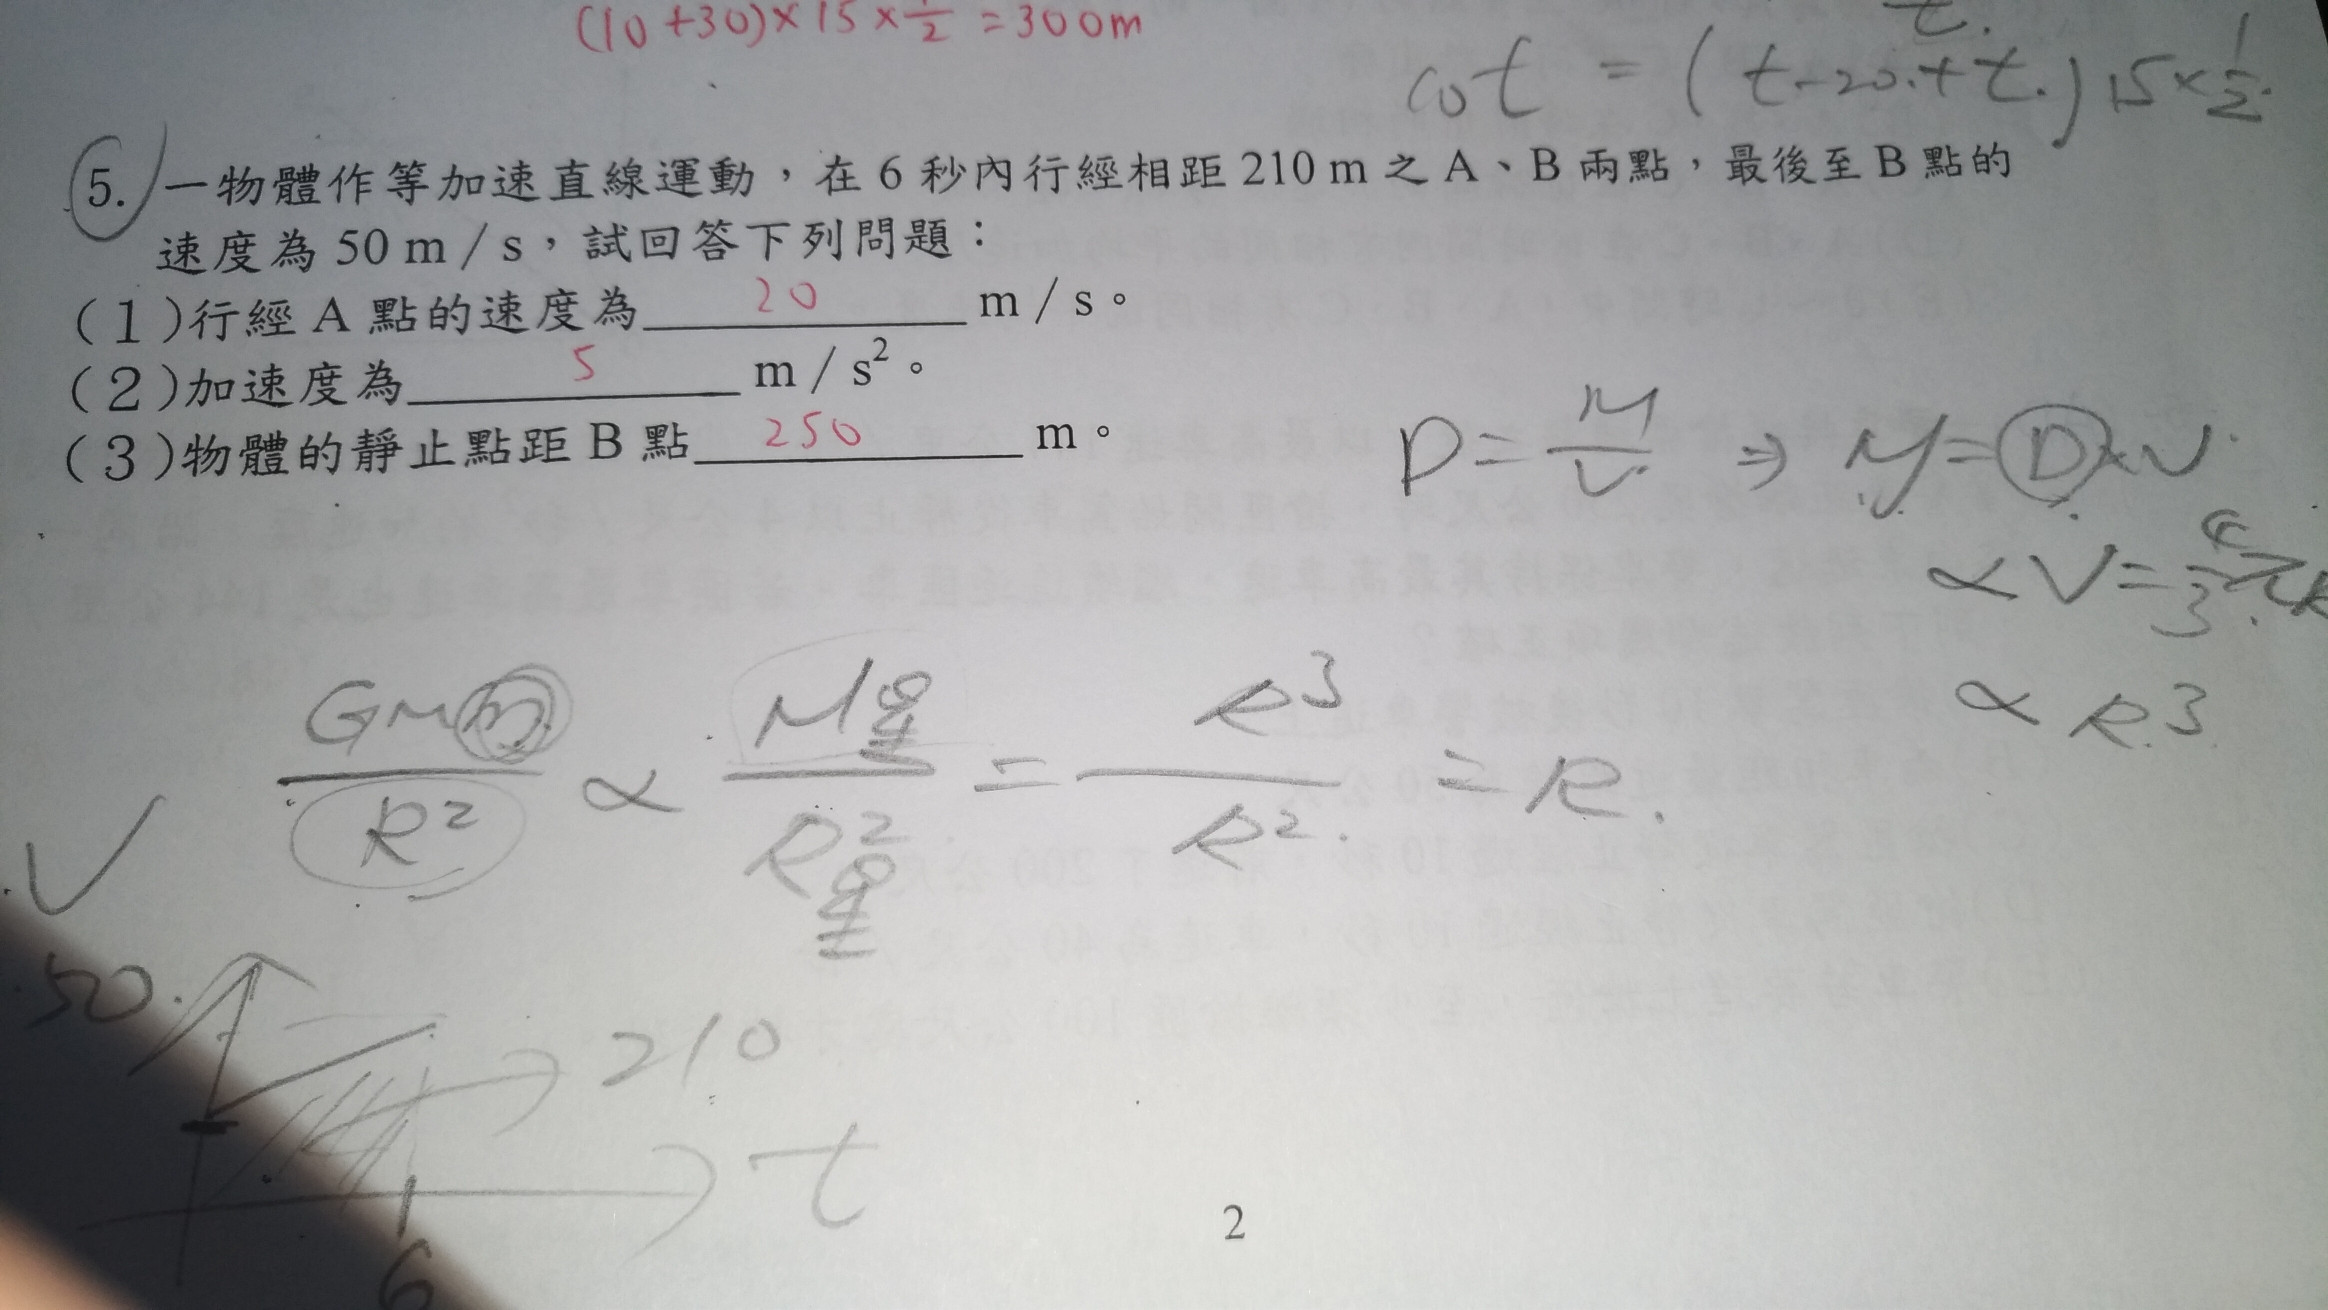 (10+30)×15×1/2=300m
t.
60t=(t-20.+t.)15×1/2.
5.一物體作等加速直線運動，在6秒內行經相距210 m之A、B兩點，最後至B點的
速度為50 m/s，試回答下列問題：
(1)行經A點的速度為 20 m/s。
(2)加速度為 5 m/s²。
(3)物體的靜止點距B點 250 m。
D=M/V ⇒ M=D×V
∝V=4/3πR
∝R³
GMm/R² ∝ M星/R²星 = R³/R² = R.
50.
210
t
6
2